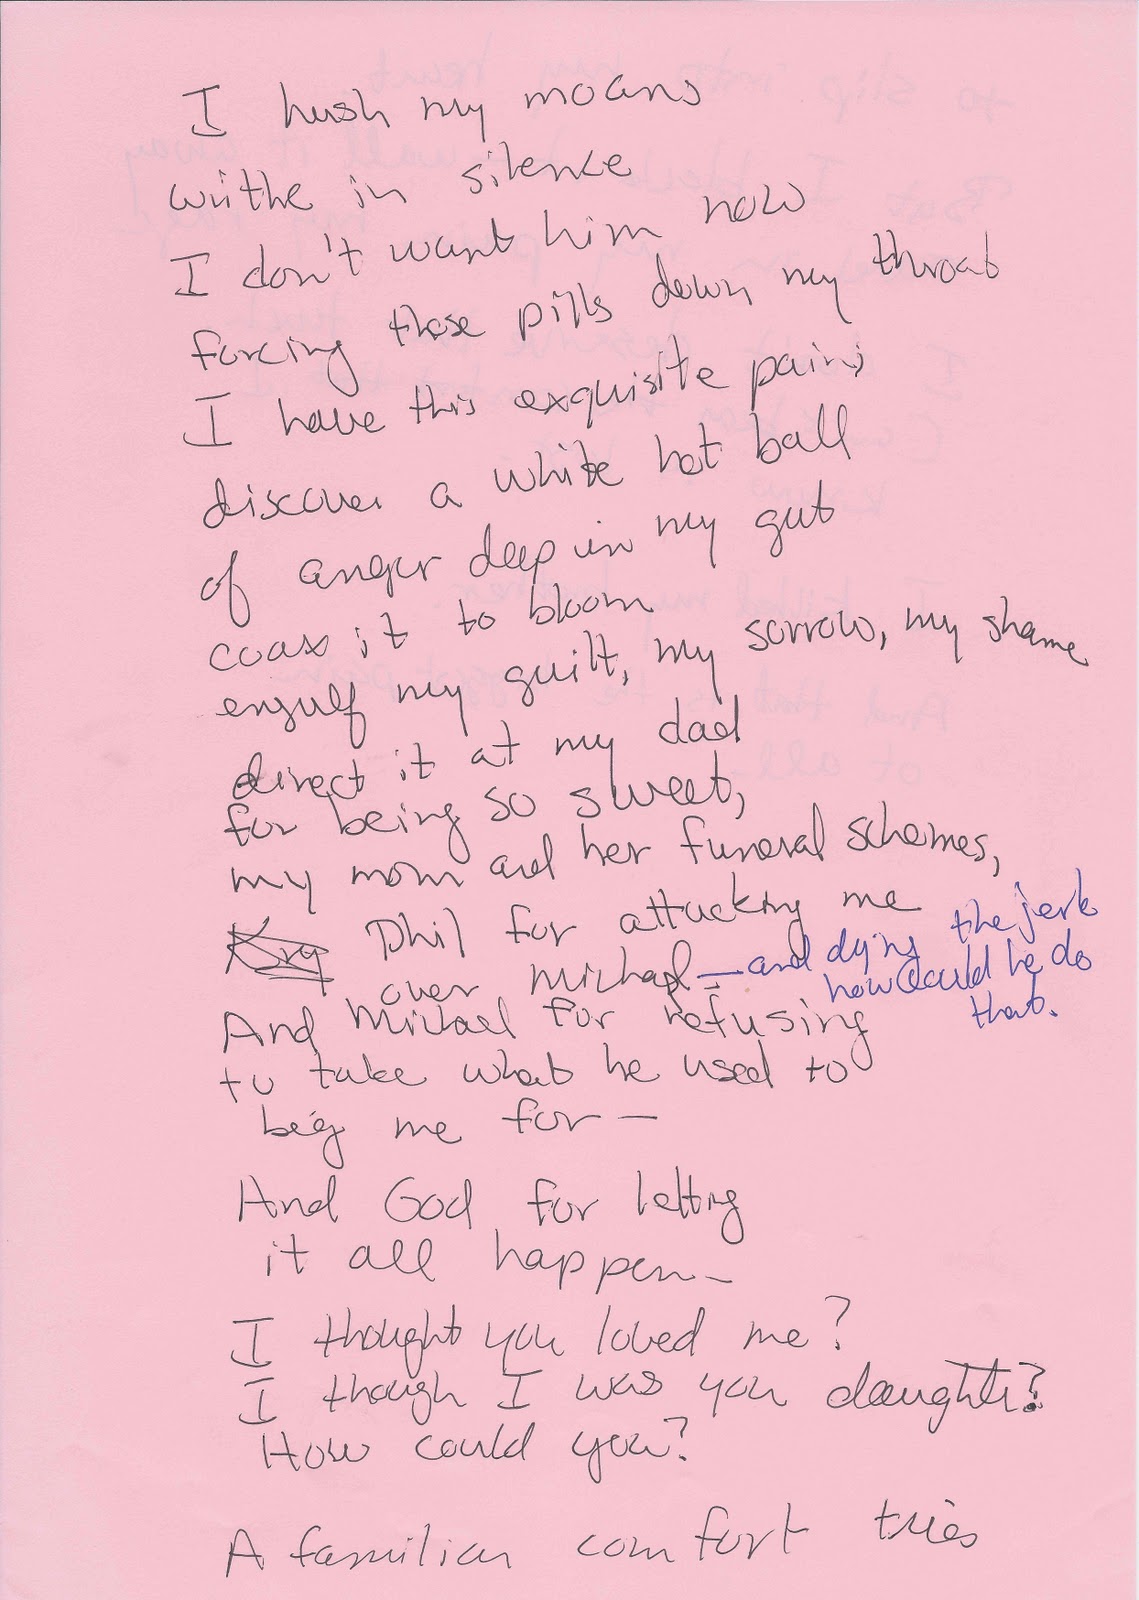 I hush my moans
writhe in silence
I don't want him now
forcing those pills down my throat
I have this exquisite pain;
discover a white hot ball
of anger deep in my gut
coax it to bloom
engulf my guilt, my sorrow, my shame
direct it at my dad
for being so sweet,
my mom and her funeral schemes,
Phil for attacking me
over Michael — and dying the jerk
how could he do
that.
And Michael for refusing
to take what he used to
beg me for —
And God for letting
it all happen —
I thought you loved me?
I though I was you daughter?
How could you?
A familiar comfort tries